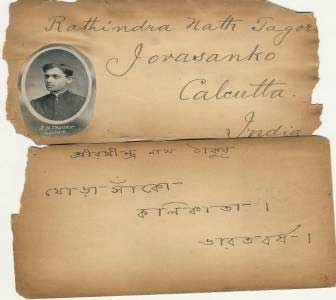 Rathindra Nath Tagor
Jorasanko
Calcutta.
India
শ্রীরথীন্দ্র নাথ ঠাকুর
যোড়াসাঁকো
কলিকাতা ।
ভারতবর্ষ ।